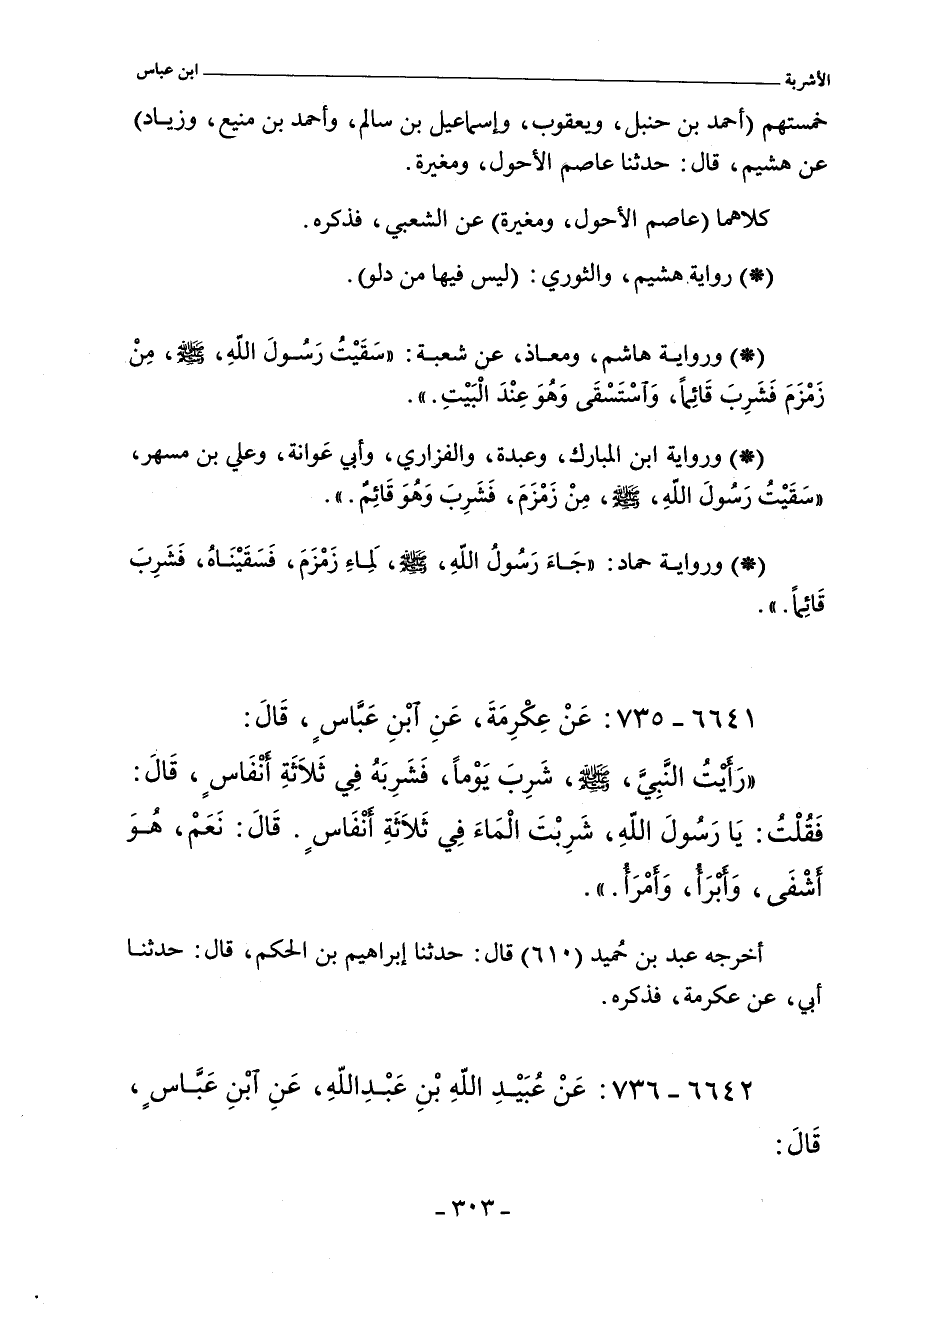 الأشربة ــــــ ابن عباس
خمستهم (أحمد بن حنبل، ويعقوب، وإسماعيل بن سالم، وأحمد بن منيع، وزيـاد)
عن هشيم، قال: حدثنا عاصم الأحول، ومغيرة.
كلاهما (عاصم الأحول، ومغيرة) عن الشعبي، فذكره.
(*) رواية هشيم، والثوري: (ليس فيها من دلو).
(*) وروايـة هاشم، ومعـاذ، عن شعبـة: «سَقَيْتُ رَسُـولَ اللّهِ، ﷺ، مِنْ
زَمْزَمَ فَشَرِبَ قَائِماً، وَٱسْتَسْقَى وَهُوَ عِنْدَ الْبَيْتِ.».
(*) ورواية ابن المبارك، وعبدة، والفزاري، وأبي عَوانة، وعلي بن مسهر،
«سَقَيْتُ رَسُولَ اللّهِ، ﷺ، مِنْ زَمْزَمَ، فَشَرِبَ وَهُوَ قَائِمٌ.».
(*) وروايـة حماد: «جَـاءَ رَسُولُ اللّهِ، ﷺ، لِمَاءِ زَمْزَمَ، فَسَقَيْنَـاهُ، فَشَرِبَ
قَائِماً.».
٦٦٤١ ـ ٧٣٥: عَنْ عِكْرِمَةَ، عَنِ ٱبْنِ عَبَّاسٍ، قَالَ:
«رَأَيْتُ النَّبِيَّ، ﷺ، شَرِبَ يَوْماً، فَشَرِبَهُ فِي ثَلاَثَةِ أَنْفَاسٍ، قَالَ:
فَقُلْتُ: يَا رَسُولَ اللّهِ، شَرِبْتَ الْمَاءَ فِي ثَلاَثَةِ أَنْفَاسٍ. قَالَ: نَعَمْ، هُـوَ
أَشْفَى، وَأَبْرَأُ، وَأَمْرَأُ.».
أخرجه عبد بن حُميد (٦١٠) قال: حدثنا إبراهيم بن الحكم، قال: حدثنـا
أبي، عن عكرمة، فذكره.
٦٦٤٢ ـ ٧٣٦: عَنْ عُبَيْـدِ اللّهِ بْنِ عَبْـدِاللّهِ، عَنِ ٱبْنِ عَبَّـاسٍ،
قَالَ:
- ٣٠٣ -